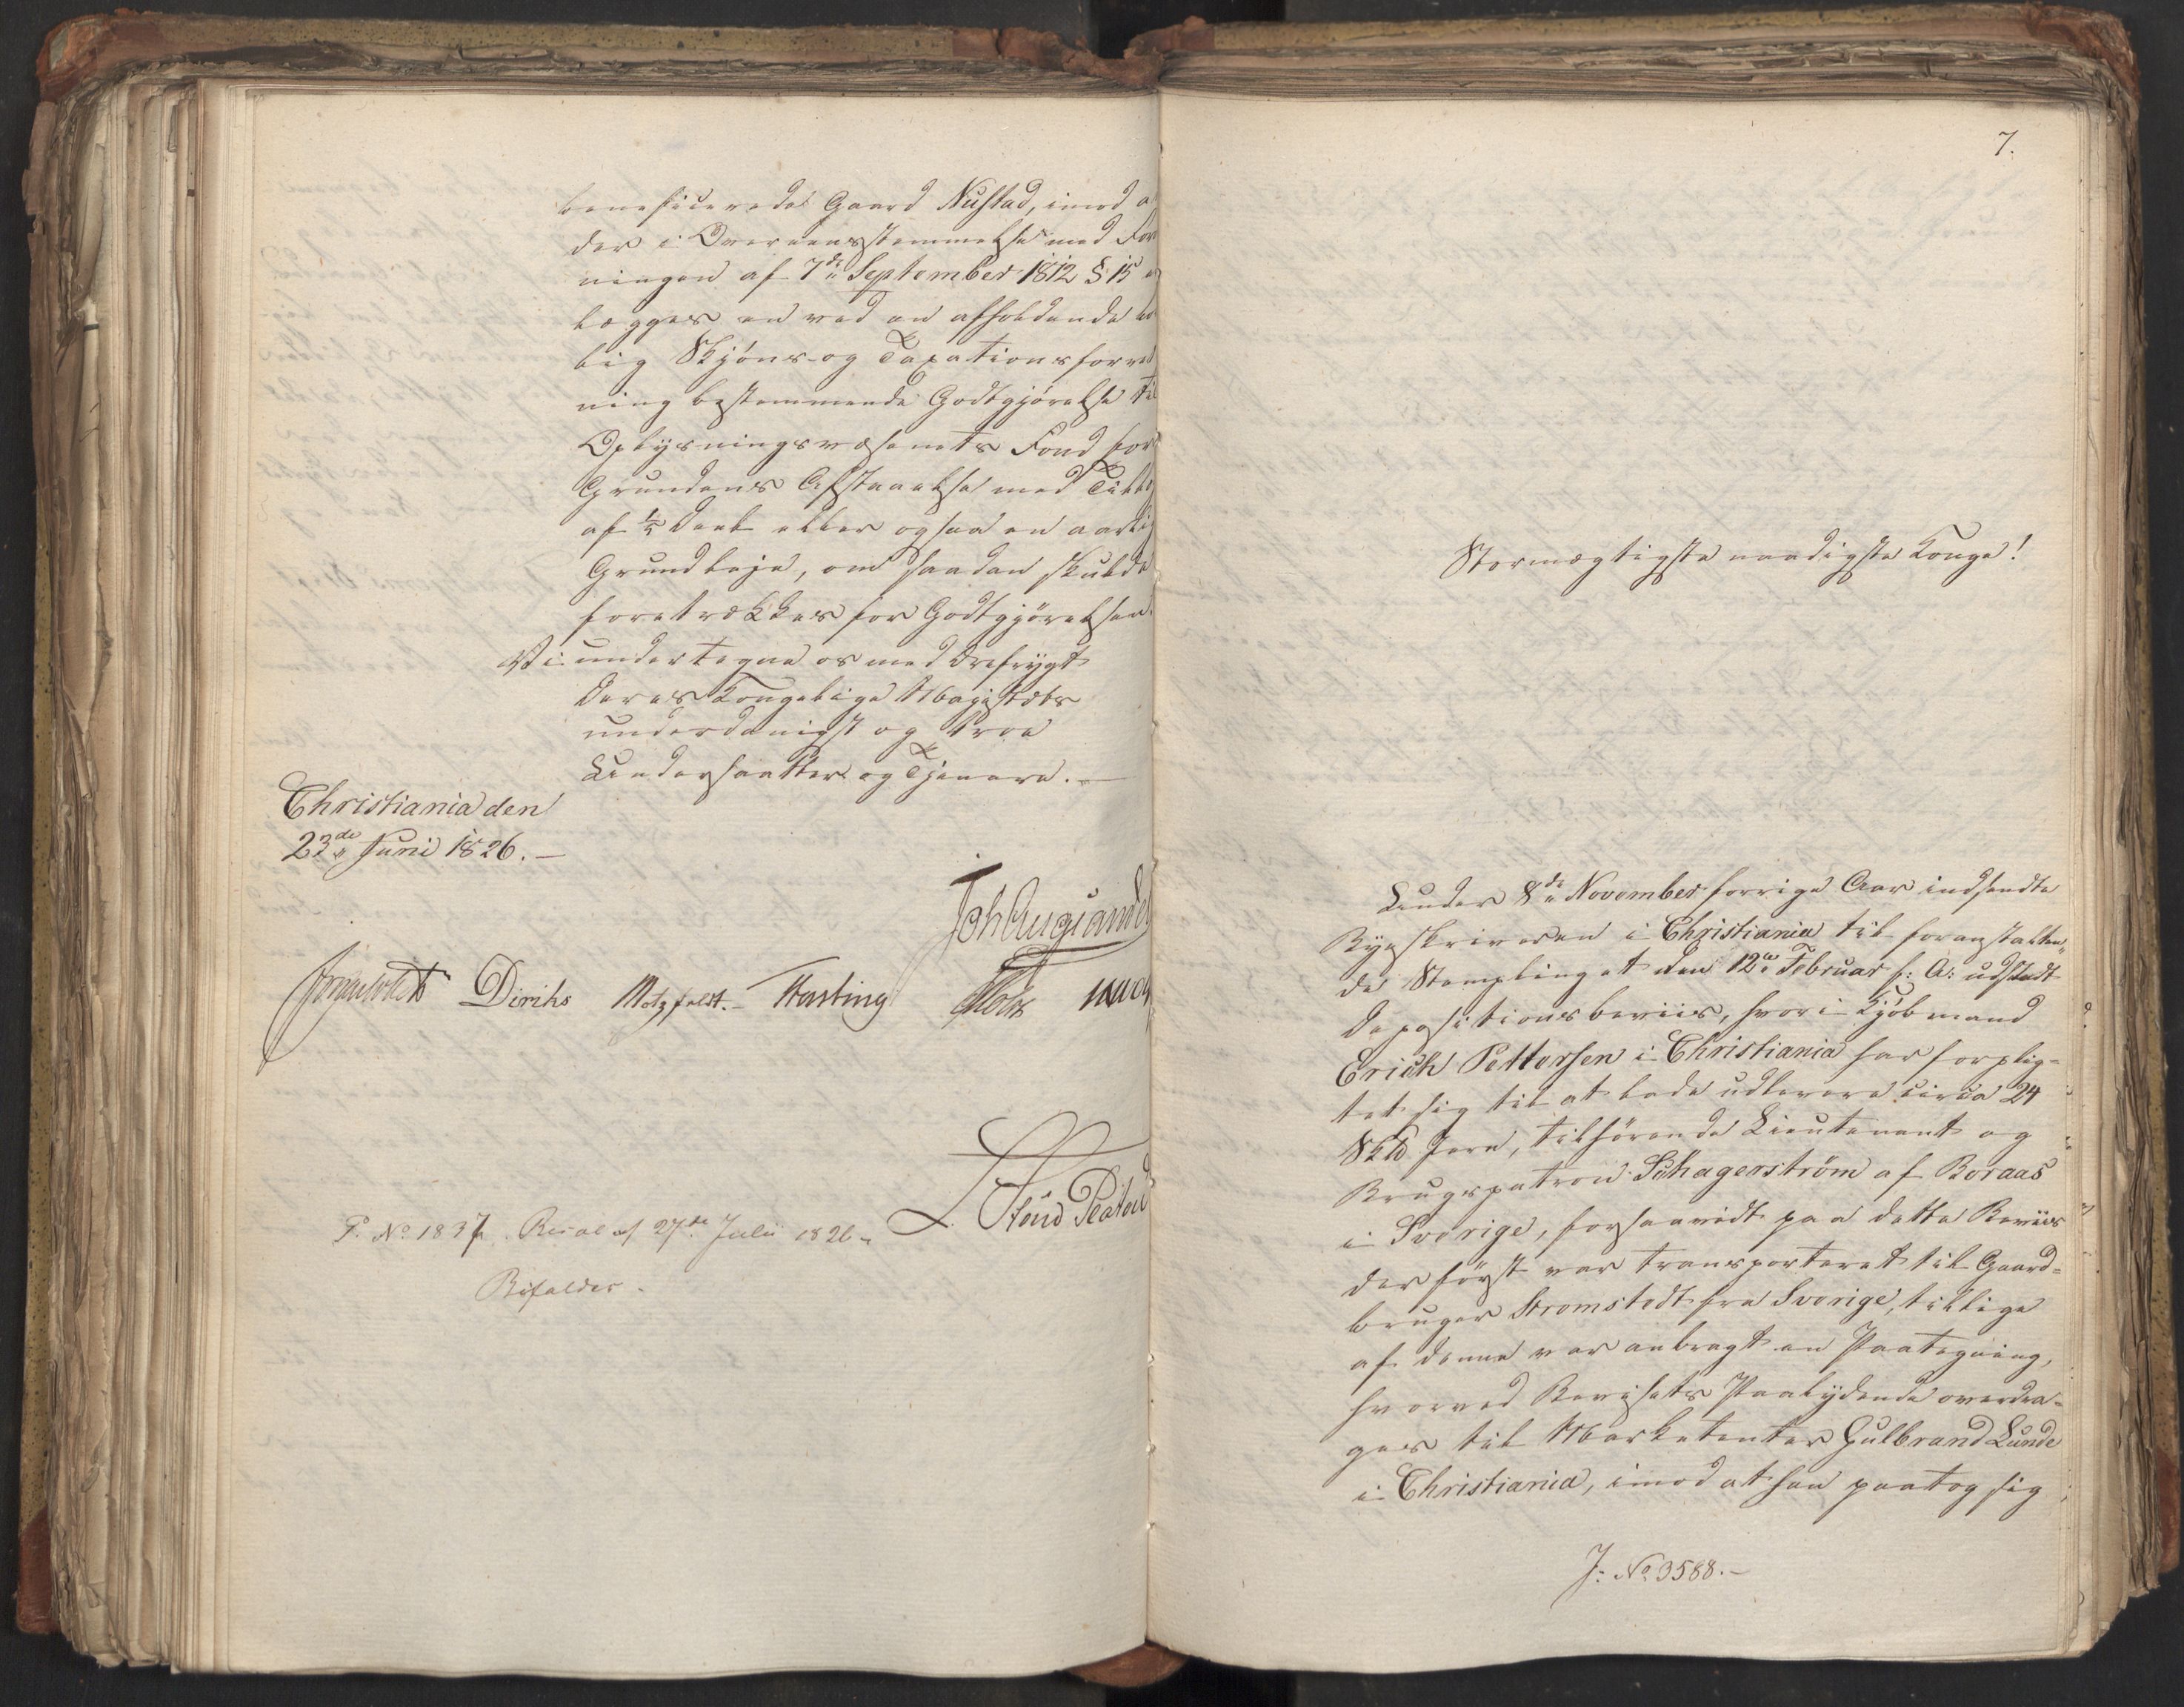 beneficerede Gaard Nustad, imod a
der i Overeensstemmelse med For
ningen af 7de September 1812 § 15
lægges en ved en afholdende lov
lig Skjöns- og Taxationsforret
ning bestemmende Godtgjörelse til
Oplysningsvæsenets Fond for
Grundens Afstaaelse med Tillæg
af 1/5 Deel eller ogsaa en aarlig
Grundleje, om saadan skulde
foretrækkes for Godtgjörelsen.
Vi undertegne os med Ærefrygt
Deres Kongelige Majestæts
underdanigst og troe
Undersaatter og Tjenere. —
Christiania den
23de Juni 1826. —
Joh Aug Sandel
Diriks Motzfeldt. Fasting
L. Stoud Platou
P. No 1837. Resol af 27de Julii 1826
Bifaldes.
7.
Stormægtigste naadigste Konge!
Under 8de November forrige Aar indsendte
Byeskriveren i Christiania til foranstalten„
de Stempling et den 12te Februar f: A: udstedt
Depositionsbeviis, hvori Kjöbmand
Erich Pettersen i Christiania har forplig-
tet sig til at lade udlevere circa 24
Sk℔ Jern, tilhörende Lieutenant og
Brugspatron Schagerström af Boraas
i Sverige, forsaavidt paa dette Beviis
der först var transporteret til Gaard-
bruger Stromstedt fra Sverige, tillige
af denne var anbragt en Paategning,
hvorved Bevisets Paalydende overdra-
ges til Marketenter Gulbrand Lunde
i Christiania, imod at han paatog sig
J: No 3588. —